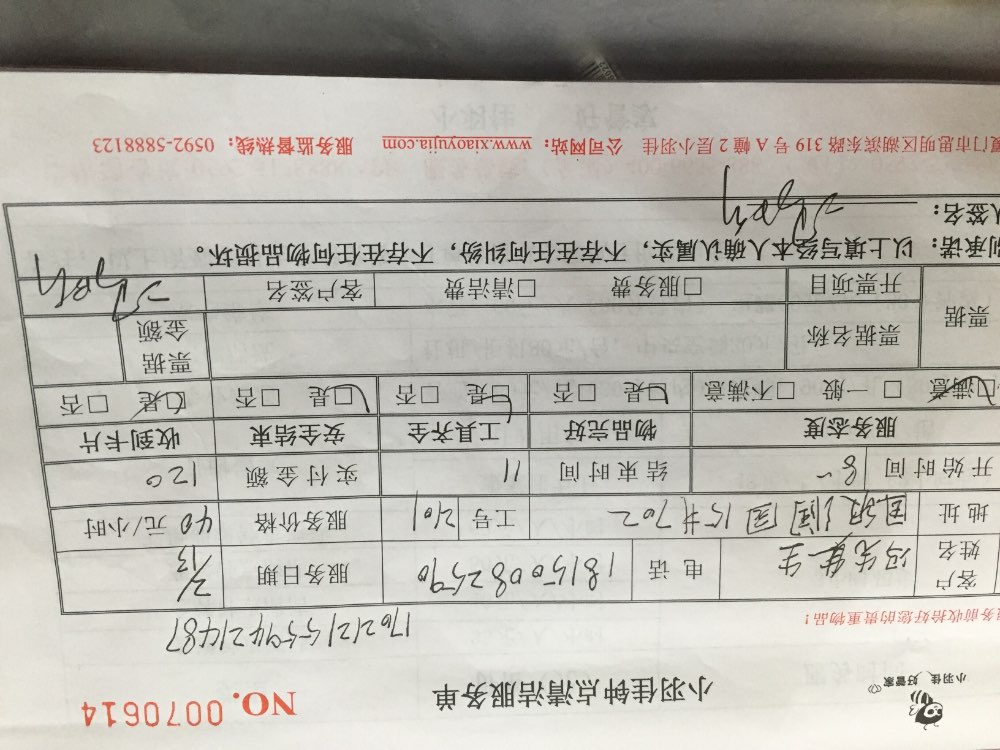 小羽佳 好管家
小羽佳钟点清洁服务单
NO. 0070614
务前收拾好您的贵重物品！
1702121559421487
客户姓名 冯先生 电话 18150082590 服务日期 2/13
地址 国贸润园15#702 工号 2101 服务价格 40 元/小时
开始时间 8~ 结束时间 11 实付金额 120
服务态度 物品完好 工具齐全 安全结束 收到卡片
□满意 □一般 □不满意 □是 □否 □是 □否 □是 □否 □是 □否
票据 票据名称 票据金额
开票项目 □服务费 □清洁费 客户签名
承诺：以上填写经本人确认属实，不存在任何纠纷，不存在任何物品损坏。
签名：
门市思明区湖滨东路 319 号 A 幢 2 层小羽佳 公司网站：www.xiaoyujia.com 服务监督热线：0592-5888123